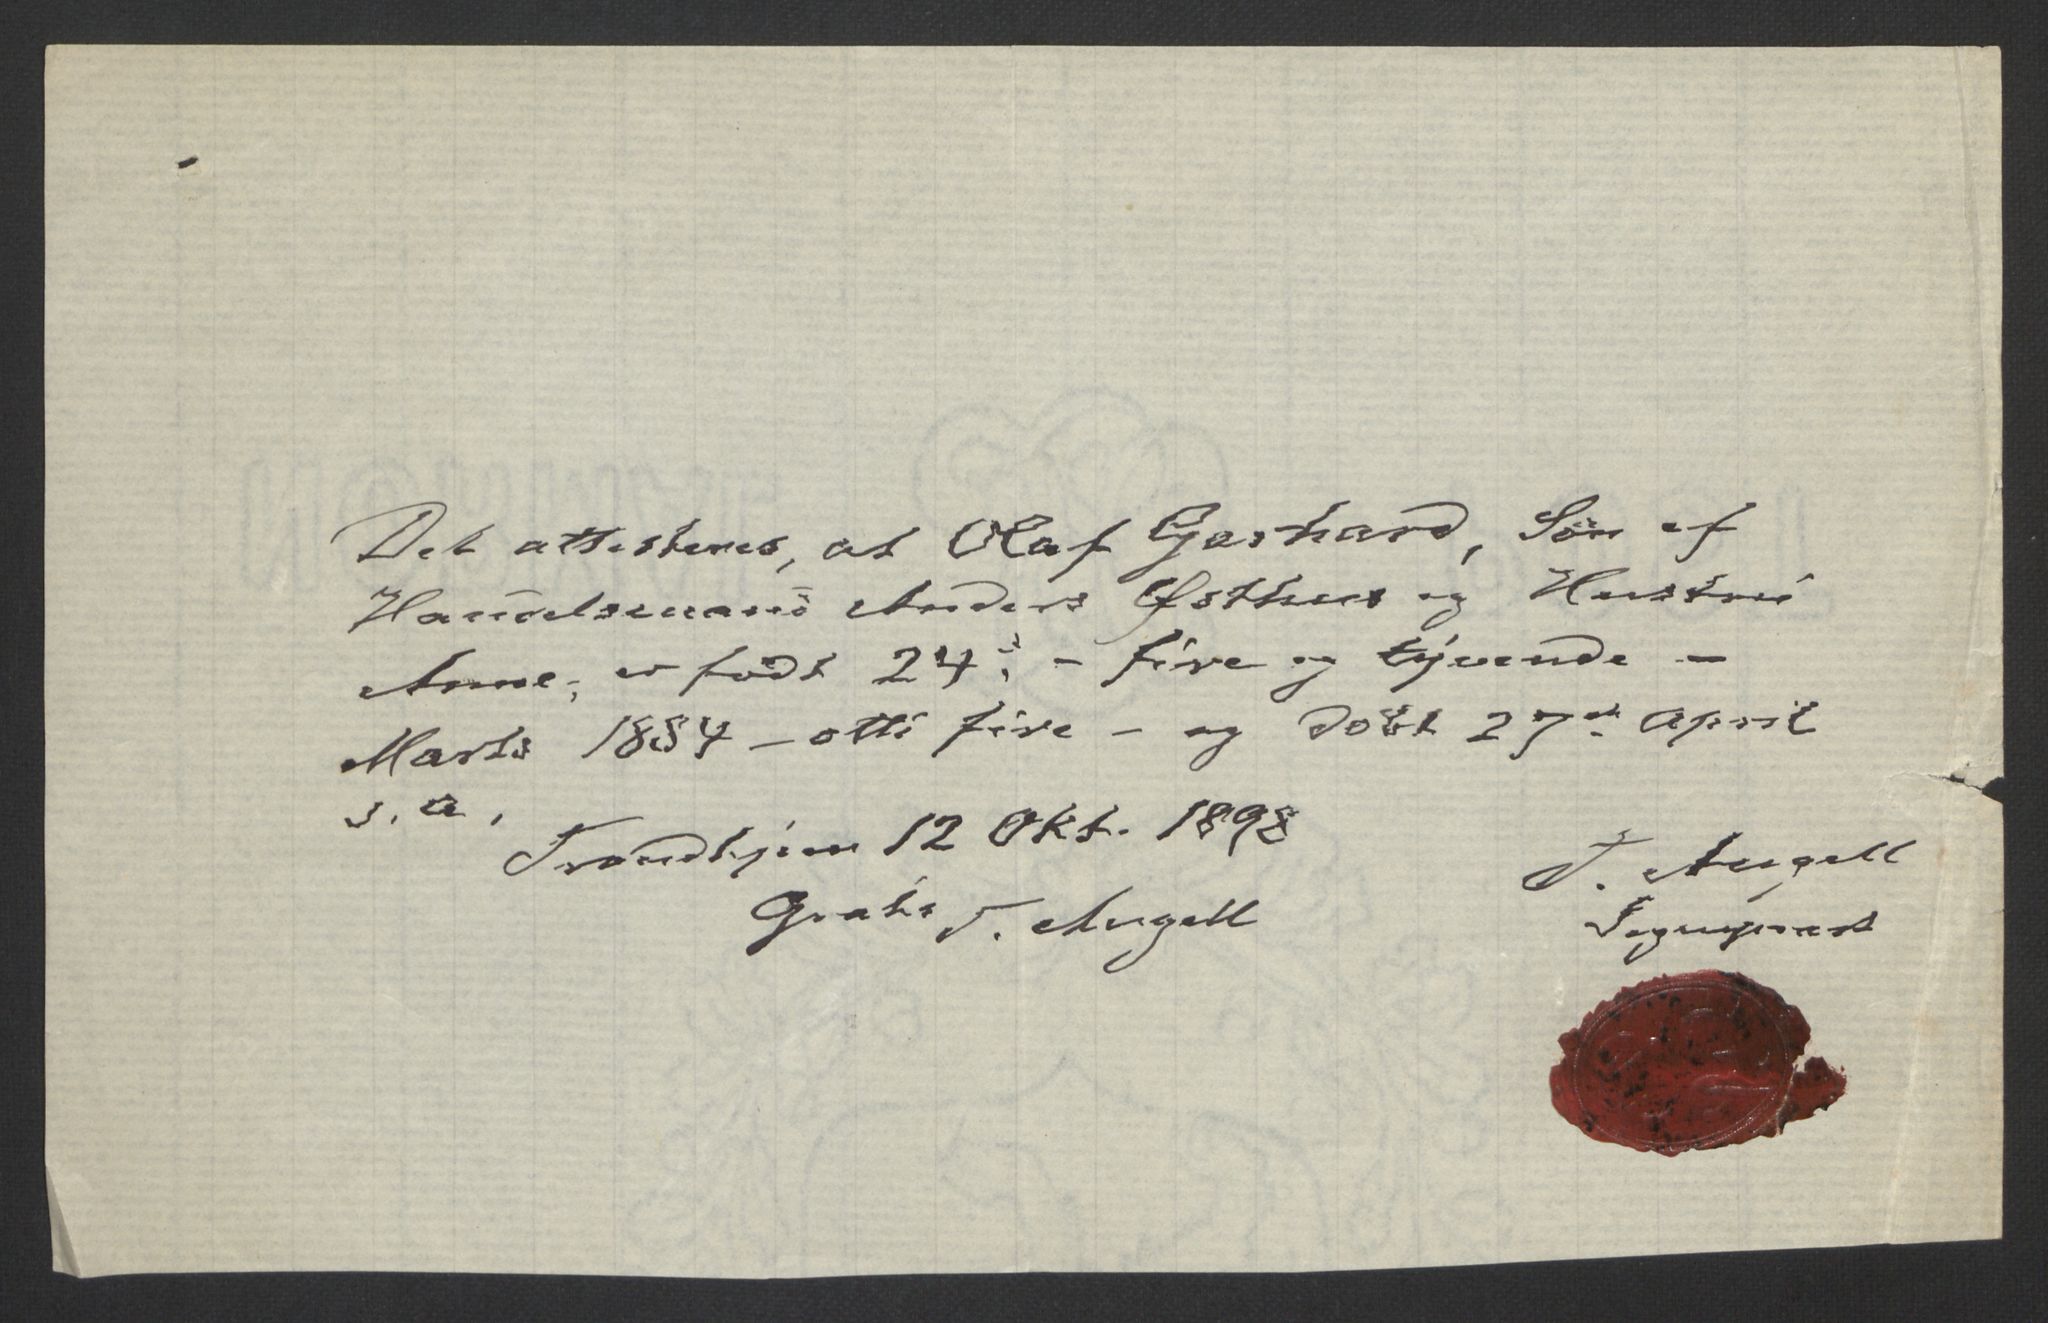 Det attesteres, at Olaf Gerhard, Sön af
Handelsmand Anders Østhus og Hustru
Anne, er født 24: - fire og tyvende -
Marts 1884 - otti fire - og døbt 27de April
s. a.
Trondhjem 12 Okt. 1898
T. Angell
Sogneprest
Gratis T. Angell